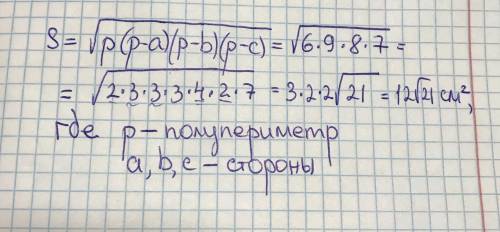 S = √p(p-a)(p-b)(p-c) = √6·9·8·7 =
= √2·3·3·3·4·2·7 = 3·2·2√21 = 12√21 см²,
где p – полупериметр
a, b, c – стороны